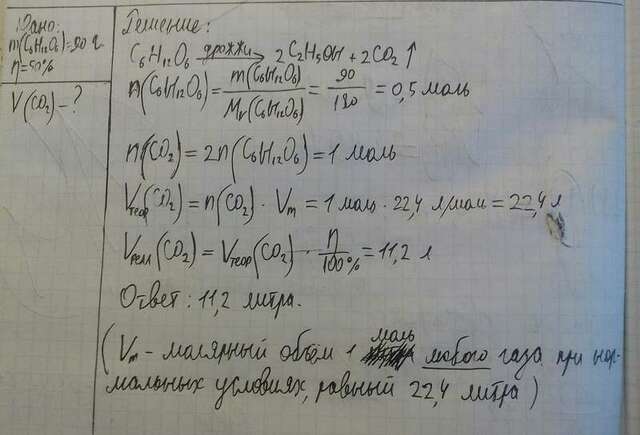 Дано:
m(C₆H₁₂O₆)=90 г
η=50%
V(CO₂)-?
Решение:
C₆H₁₂O₆ дрожжи→ 2C₂H₅OH + 2CO₂↑
n(C₆H₁₂O₆) = m(C₆H₁₂O₆)/Mr(C₆H₁₂O₆) = 90/180 = 0,5 моль
n(CO₂) = 2n(C₆H₁₂O₆) = 1 моль
Vтеор(CO₂) = n(CO₂) · Vm = 1 моль · 22,4 л/моль = 22,4 л
Vреал(CO₂) = Vтеор(CO₂) · η/100% = 11,2 л
Ответ: 11,2 литра.
(Vm - молярный объём 1 моль любого газа при нор-
мальных условиях, равный 22,4 литра)